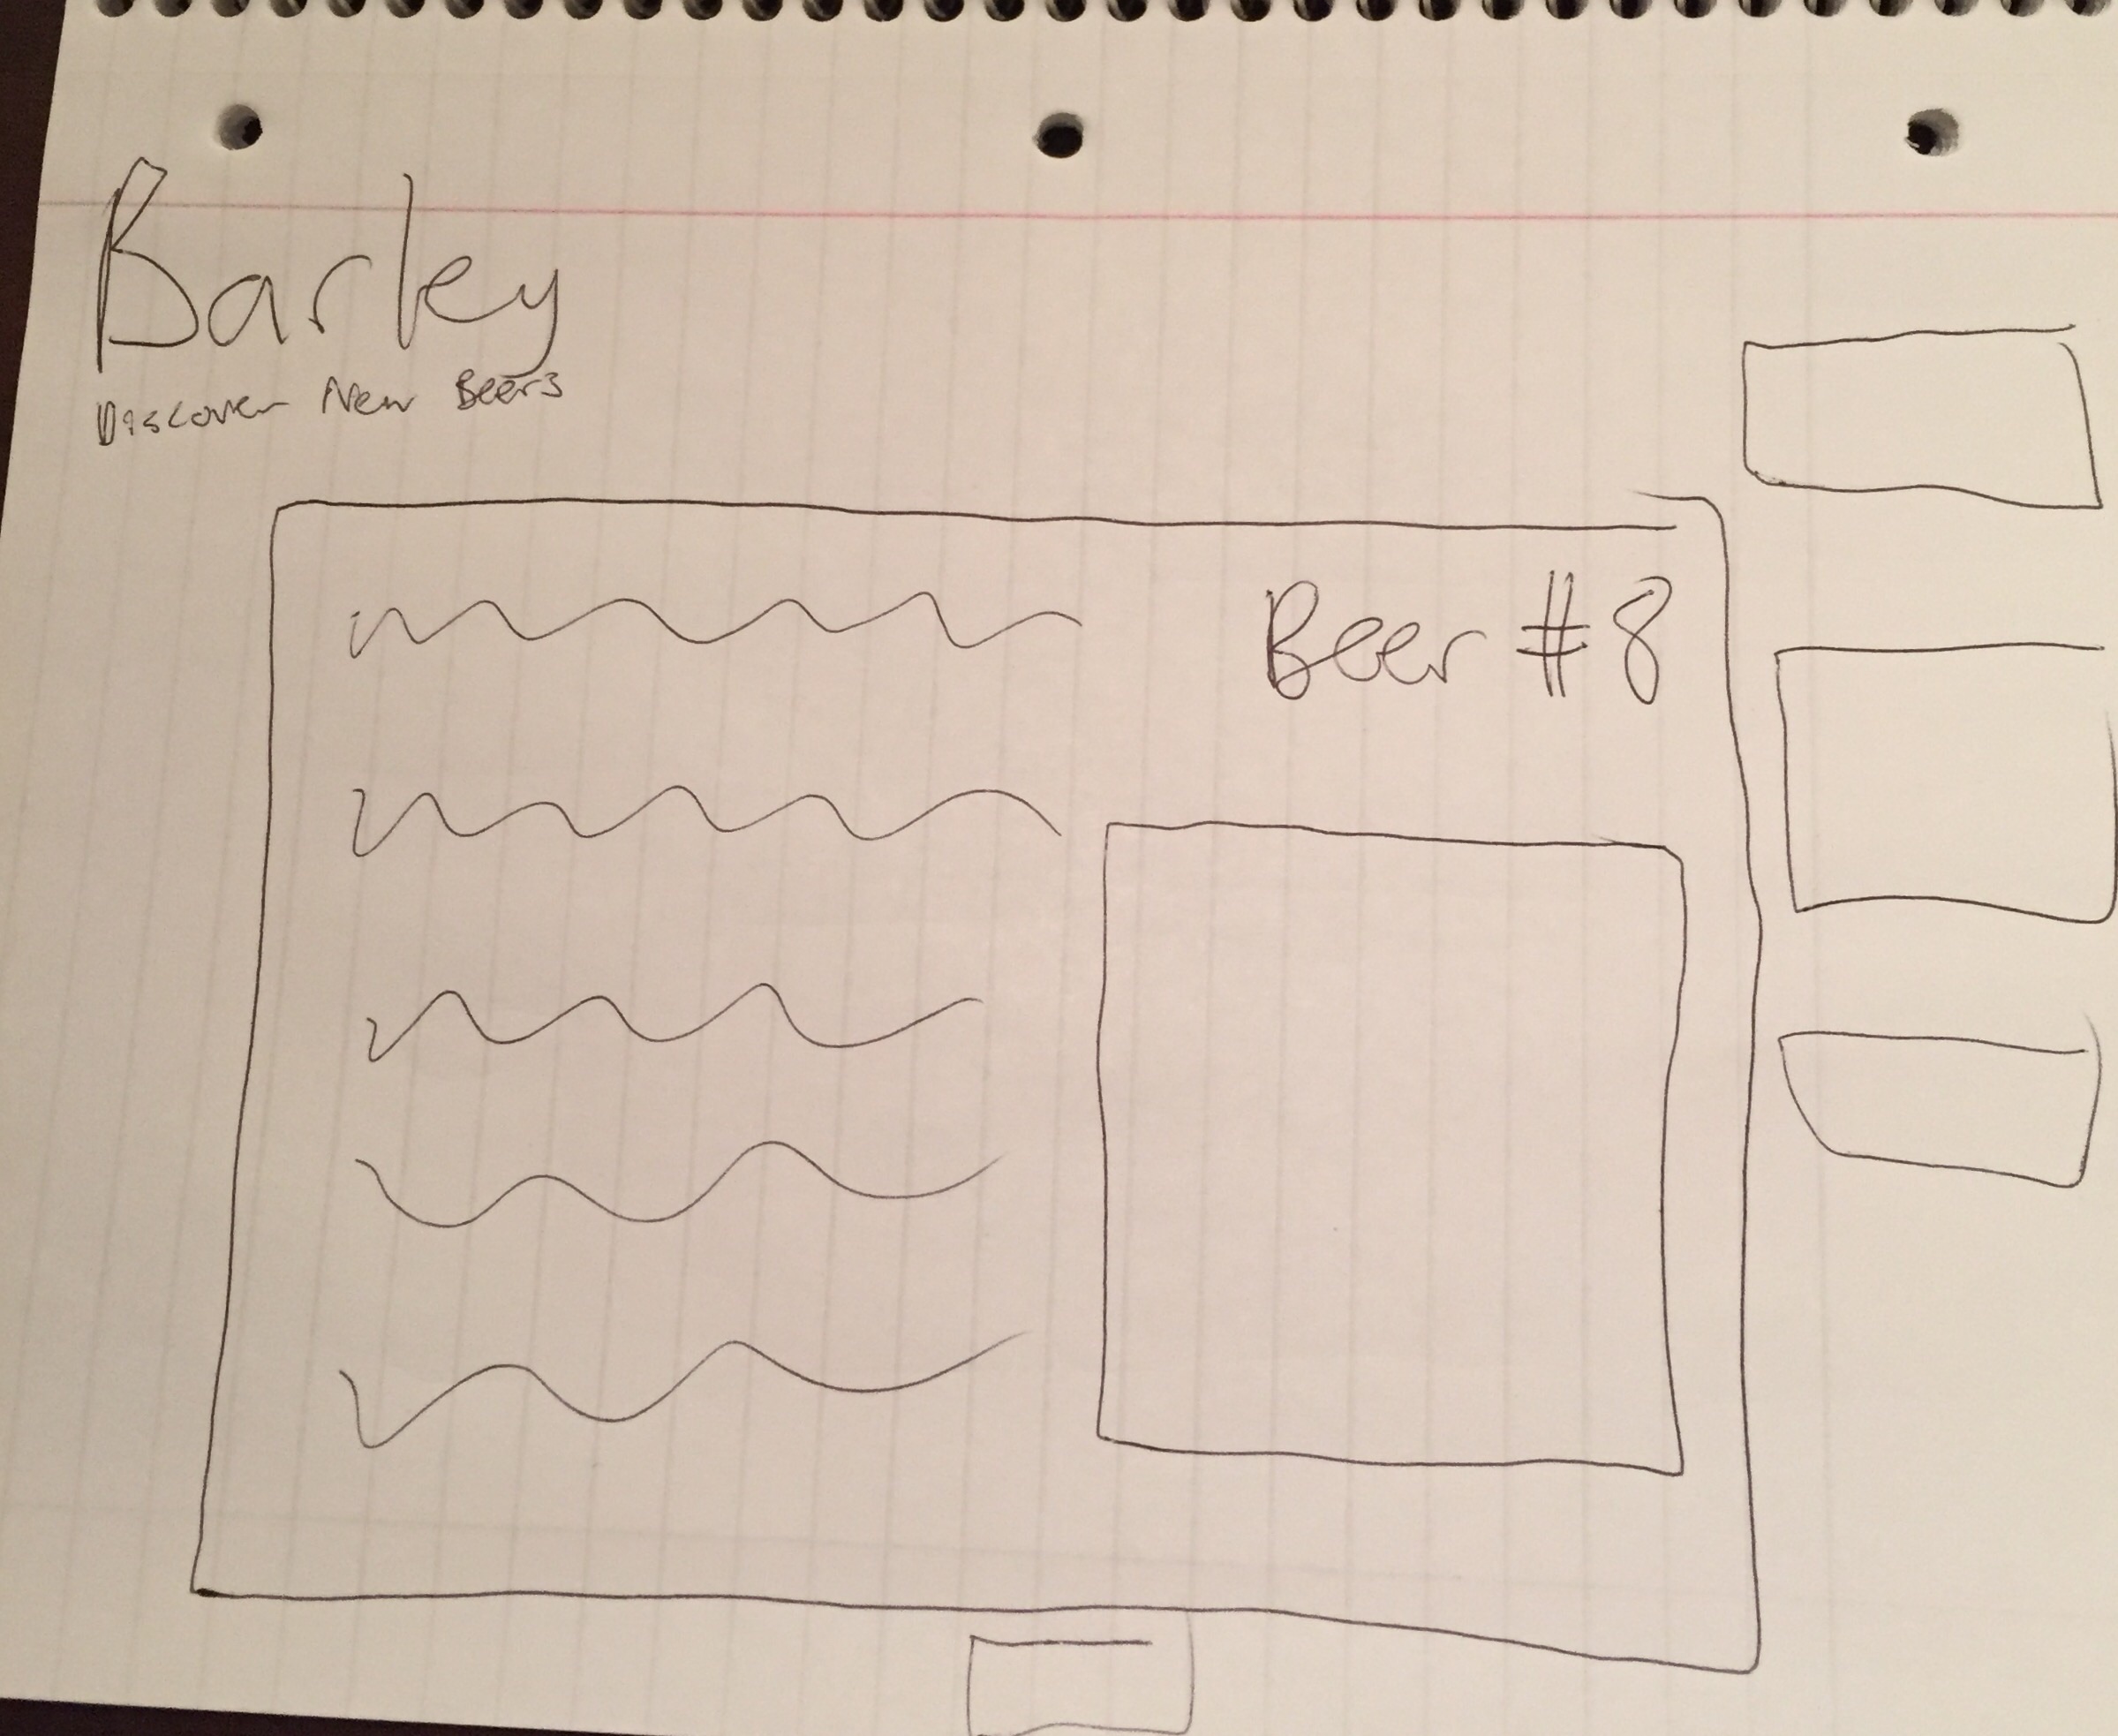 Barley
Discover New Beers
Beer #8